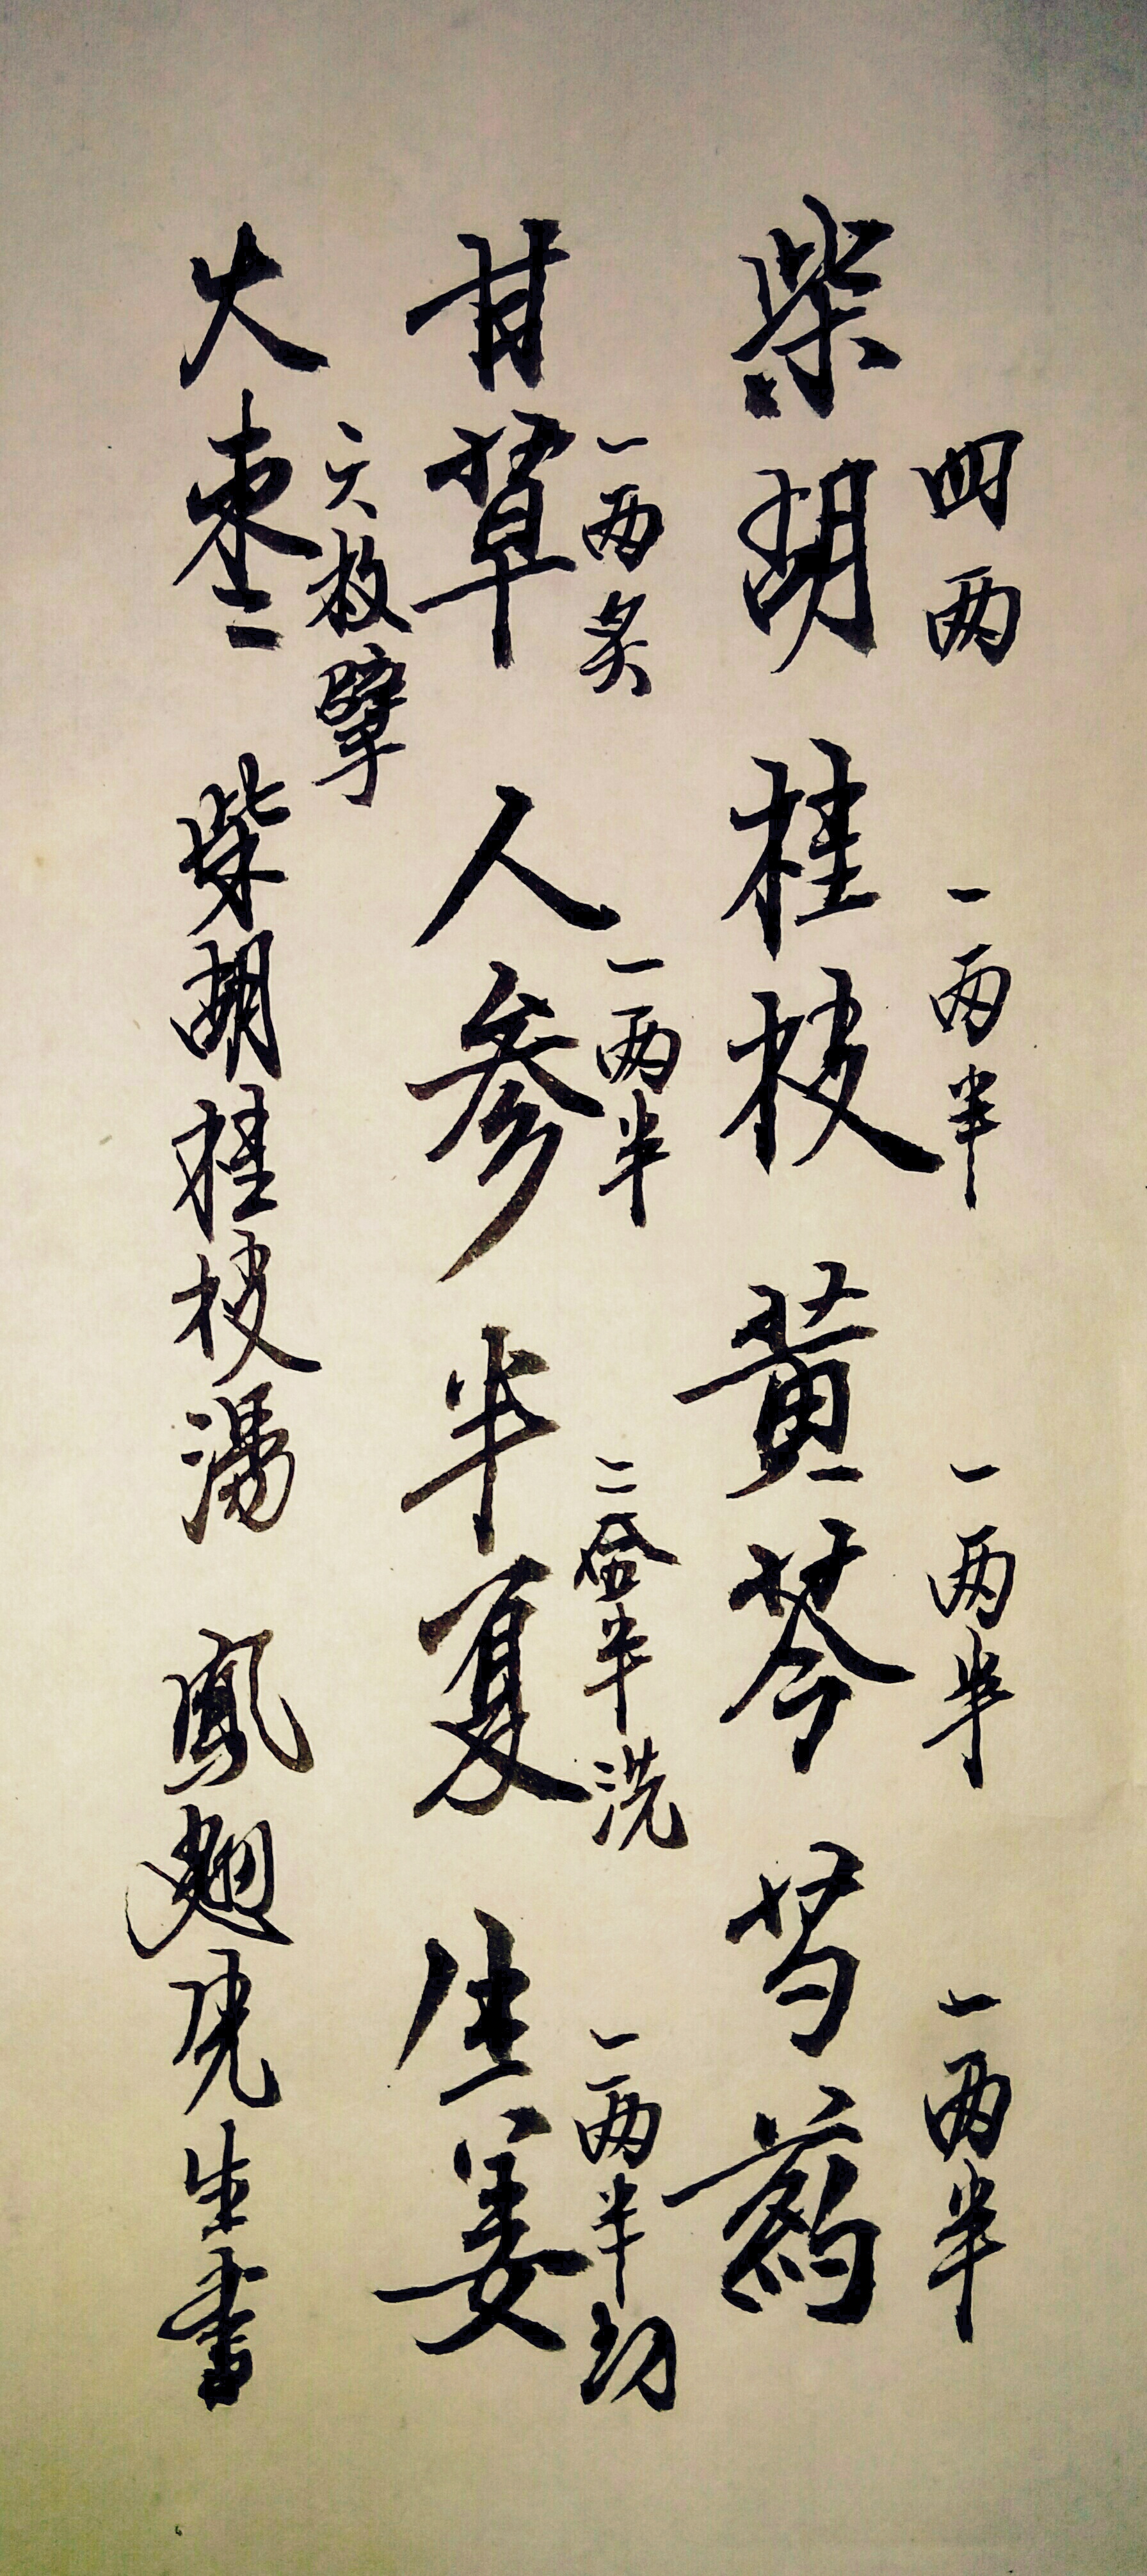 四两 一两半 一两半 一两半
柴胡 桂枝 黄芩 芍药
一两炙 一两半 二合半洗 一两半切
甘草 人参 半夏 生姜
六枚擘
大枣 柴胡桂枝汤 凤翘先生书